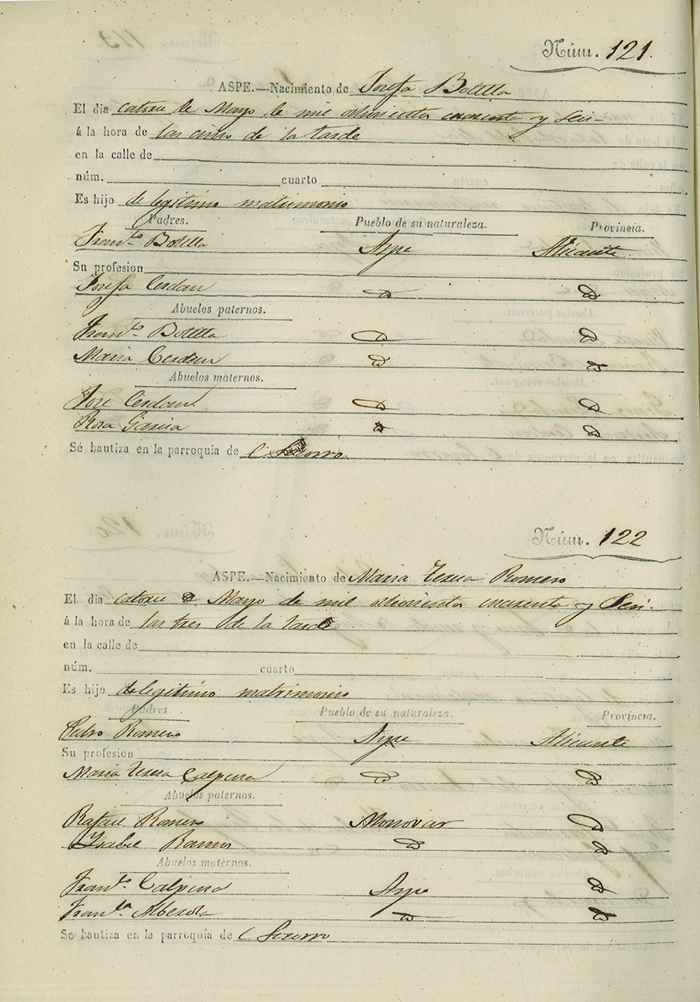 Núm. 121.
ASPE.—Nacimiento de Josefa Botella
El dia catorce de Mayo de mil ochocientos cuarenta y seis
á la hora de las cinco de la tarde
en la calle de
núm. cuarto
Es hijo de legitimo matrimonio
Padres. Pueblo de su naturaleza. Provincia.
Franco. Botella Aspe Alicante
Su profesion
Josefa Cerdan D D
Abuelos paternos.
Franco. Botella D D
Maria Cerdan D D
Abuelos maternos.
Jose Cerdan D D
Rosa Garcia D D
Se bautiza en la parroquia de l Socorro
Núm. 122
ASPE.—Nacimiento de Maria Teresa Romero
El dia catorce de Mayo de mil ochocientos cuarenta y seis
á la hora de las tres de la tarde
en la calle de
núm. cuarto
Es hijo de legitimo matrimonio
Padres Pueblo de su naturaleza. Provincia.
Pedro Romero Aspe Alicante
Su profesion
Maria Teresa Calpena D D
Abuelos paternos.
Rafael Romero Monovar D
Ysabel Ramos D D
Abuelos maternos.
Franco. Calpena Aspe D
Franca. Alberola D D
Se bautiza en la parroquia de l Socorro